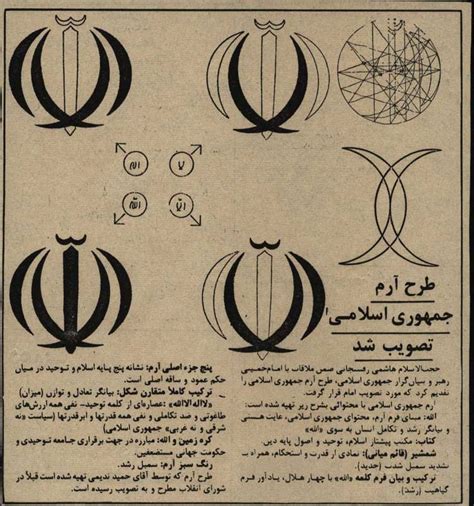 لا
اله
الّا
الله
طرح آرم
جمهوری اسلامی
تصویب شد
حجةالاسلام هاشمی رفسنجانی ضمن ملاقات با امام‌خمینی
رهبر و بنیان‌گزار جمهوری اسلامی، طرح آرم جمهوری اسلامی را
تقدیم کرد که مورد تصویب امام قرار گرفت.
آرم جمهوری اسلامی با محتوائی بشرح زیر تهیه شده است:
الله: مبنای فرم آرم، محتوای جمهوری اسلامی، غایت هستی
و بیانگر رشد و تکامل انسان به سوی «الله»
کتاب: مکتب پیشتاز اسلام، توحید و اصول پایه دین
شمشیر (قائم میانی): نمادی از قدرت و استحکام، همراه با
تشدید سمبل شدت (حدید).
ترکیب و بیان فرم کلمه «الله» با چهار هلال، یادآور فرم
گیاهیت (رشد).
پنج جزء اصلی آرم: نشانه پنج پایه اسلام و توحید در میان
حکم عمود و ساقه اصلی است.
ترکیب کاملا متقارن شکل: بیانگر تعادل و توازن (میزان)
«لااله‌الاالله»: عصاره‌ای از کلمه توحید، نفی همه ارزش‌های
طاغوتی و ضد تکاملی و نفی همه قدرتها و ابرقدرتها (سیاست «نه
شرقی و نه غربی» جمهوری اسلامی)
کره زمین و الله: مبارزه در جهت برقراری جامعه توحیدی و
حکومت جهانی مستضعفین.
رنگ سبز آرم: سمبل رشد.
طرح آرم که توسط آقای حمید ندیمی تهیه شده است قبلاً در
شورای انقلاب مطرح و به تصویب رسیده است.